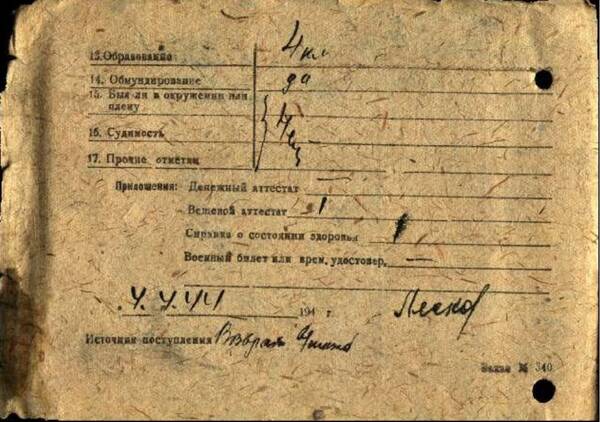 13. Образование 4 кл
14. Обмундирование да
15. Был ли в окружении или
плену
16. Судимость
17. Прочие отметки —
Приложения: Денежный аттестат —
Вещевой аттестат 1
Справка о состоянии здоровья 1
Военный билет или врем. удостовер. —
4.4.44 194 г. Леско
Источник поступления Возврат
Заказ № 340